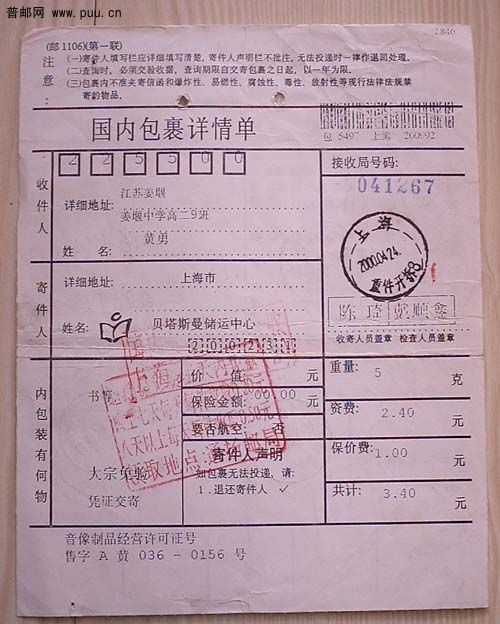 普邮网
www.puu.cn
2846
(邮1106)(第一联)
注意:
(一)寄件人填写栏应详细填写清楚。寄件人声明栏不批注,无法投递时一律作退回处理.
(二)查询时,必须交验收据,查询期限自交寄包裹之日起,以一年为限.
(三)包裹内不准夹寄信函和爆炸性、易燃性、腐蚀性、毒性、放射性等现行法律法规禁寄的物品.
国内包裹详情单
包 5497 上海 200092
收件人
225500
详细地址:
江苏姜堰
姜堰中学高二9班
姓 名:
黄勇
接收局号码:
041267
上海
2000.04.24.
寄件人
详细地址:
上海市
姓名:
贝塔斯曼储运中心
200231
陈
顺鑫
收寄人员盖章 检查人员盖章
内包装有何物
书籍
大宗免验
凭证交寄
价 值: 元
保险金额: 00.00 元
要否航空: 否
寄件人声明
如包裹无法投递,请:
1.退还寄件人 ✓
重量: 5 克
资费: 2.40 元
保价费: 1.00 元
共计: 3.40 元
音像制品经营许可证号
售字 A 黄 036 - 0156 号